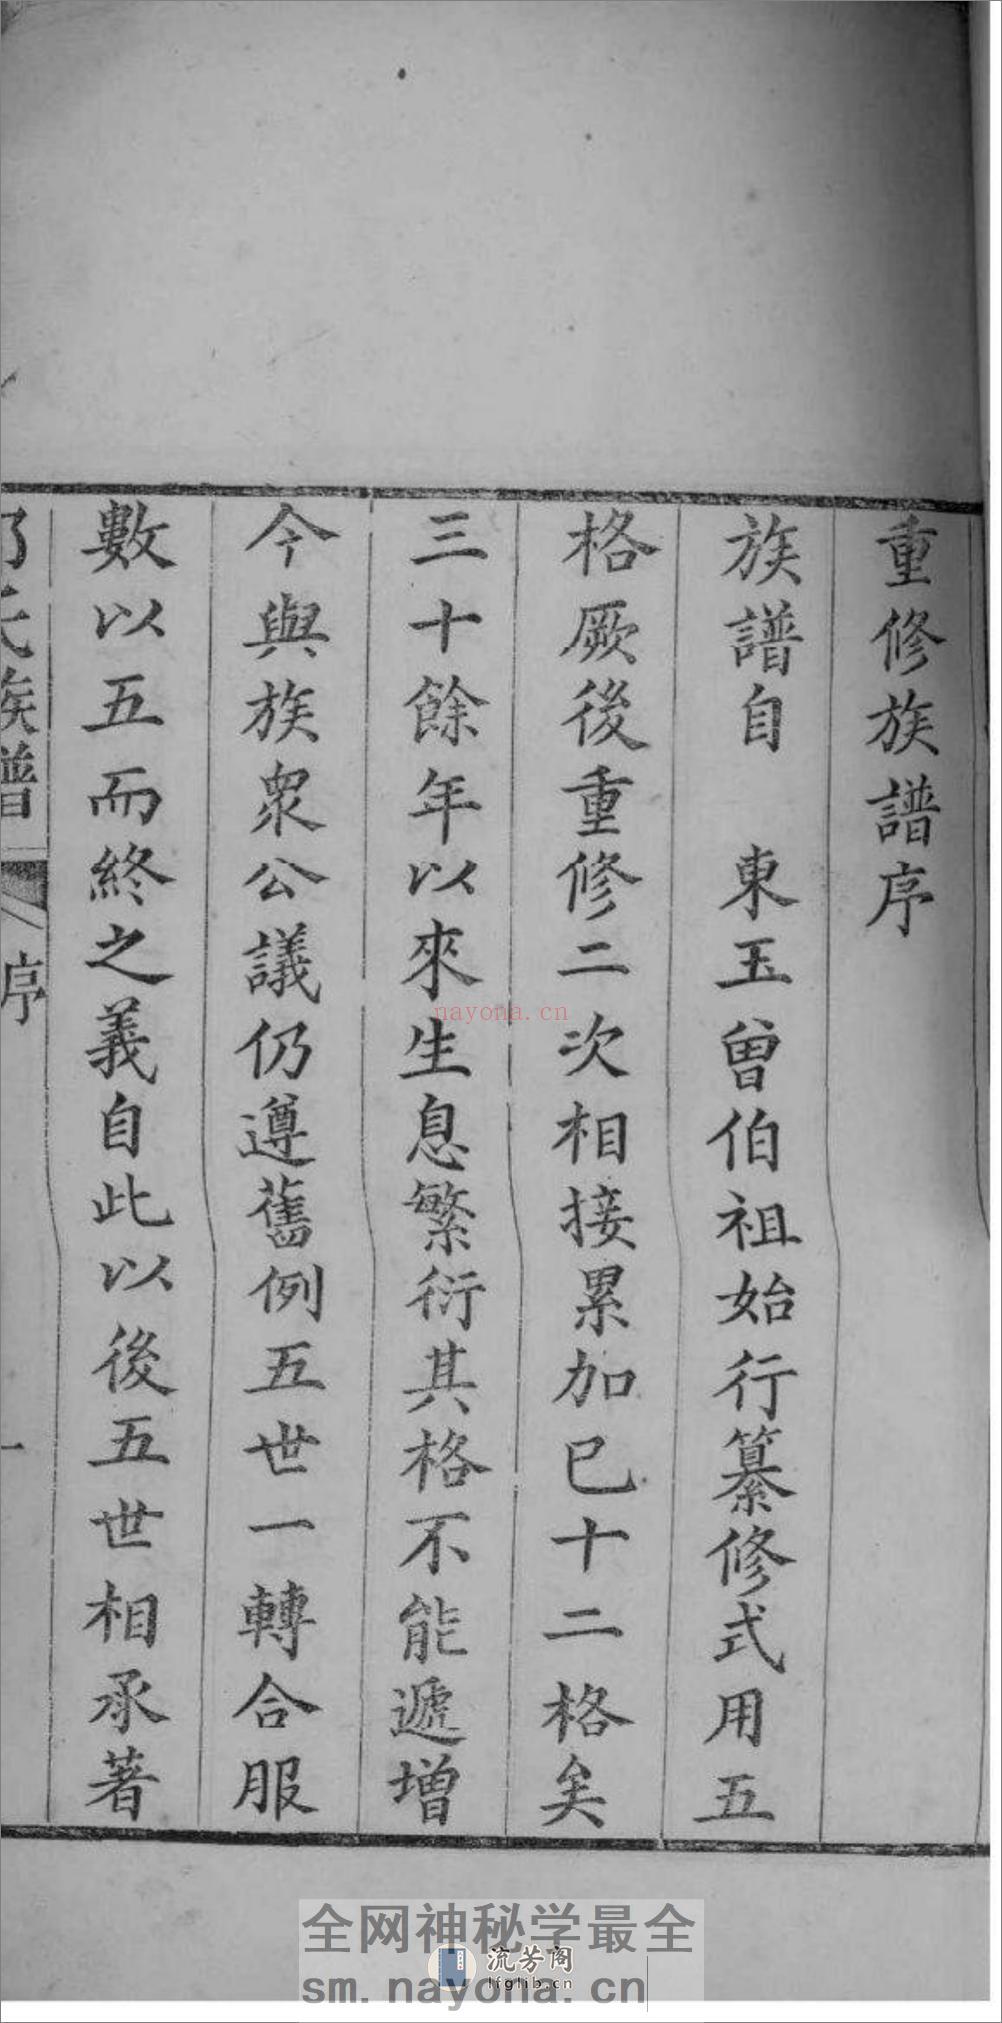 重修族譜序
族譜自　東玉曾伯祖始行纂修式用五
格厥後重修二次相接累加已十二格矣
三十餘年以來生息繁衍其格不能遞增
今與族眾公議仍遵舊例五世一轉合服
數以五而終之義自此以後五世相承著
氏族譜
序
一
nayona.cn
全网神秘学最全
流芳阁
lfglib.cn
sm.nayona.cn